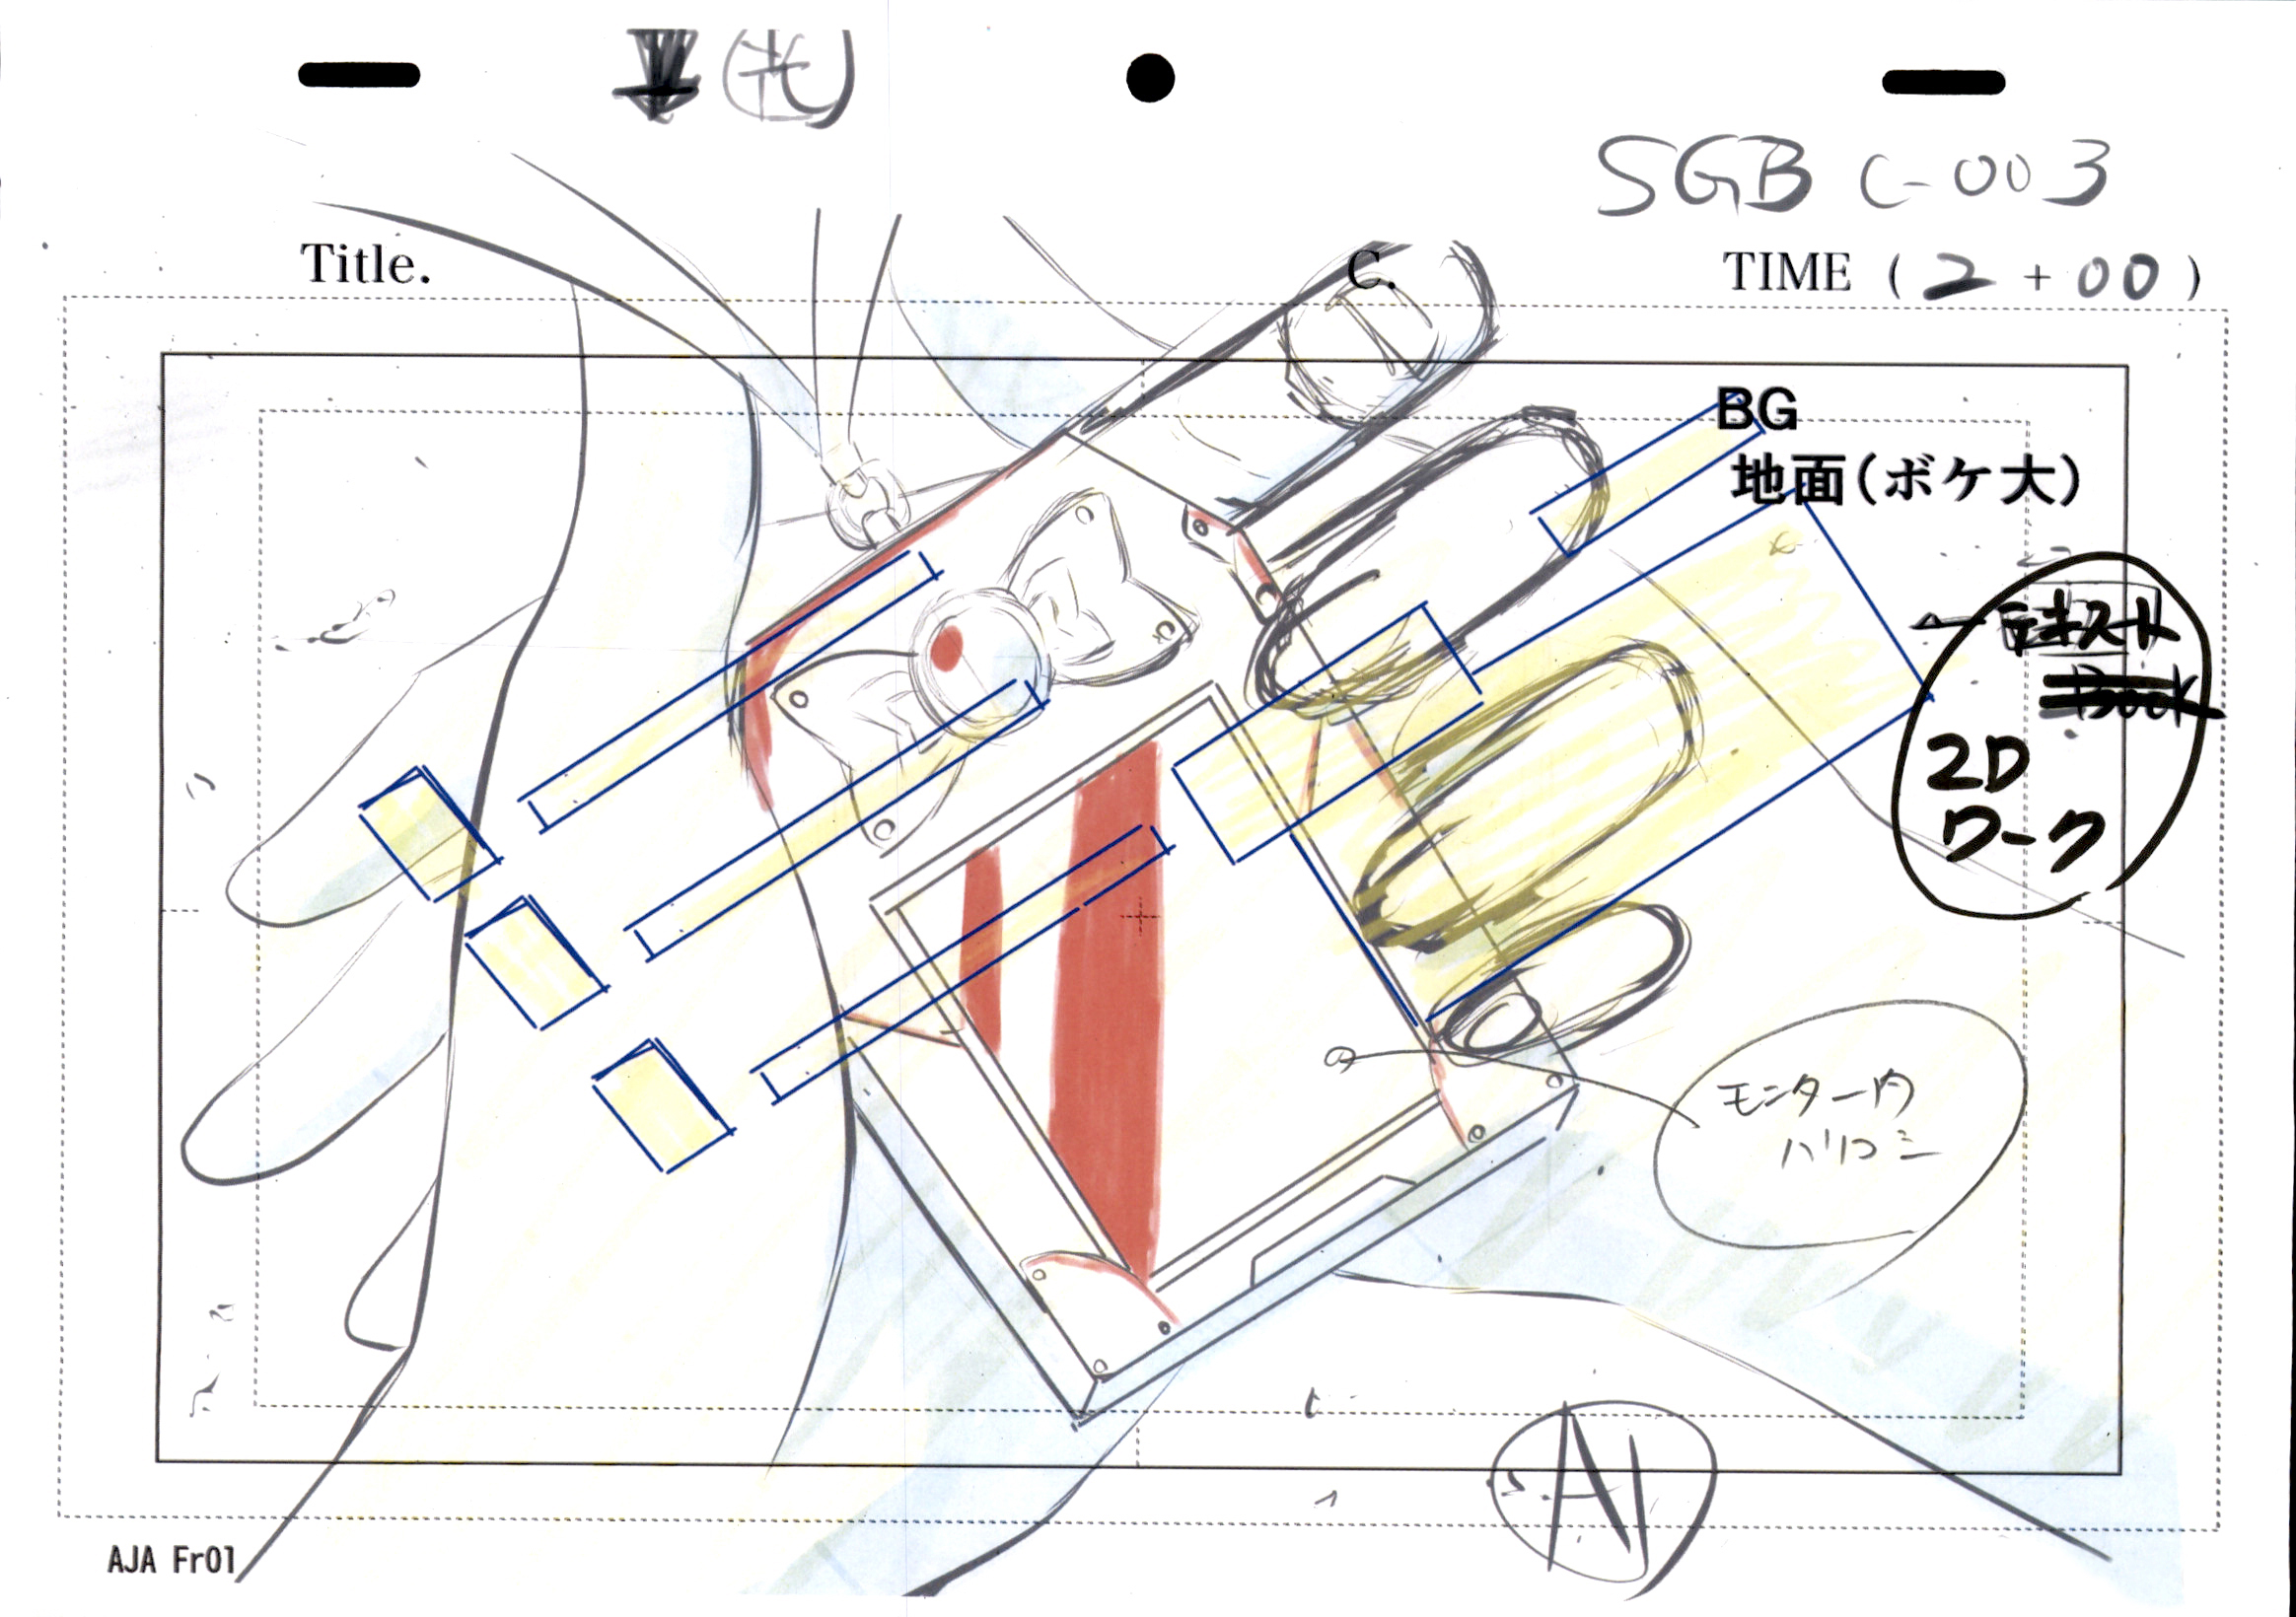 SGB C-003
Title.
C.
TIME ( 2 + 00 )
BG
地面(ボケ大)
テキスト
Book
2D
ワーク
モニター内
ハリコミ
A
AJA Fr01